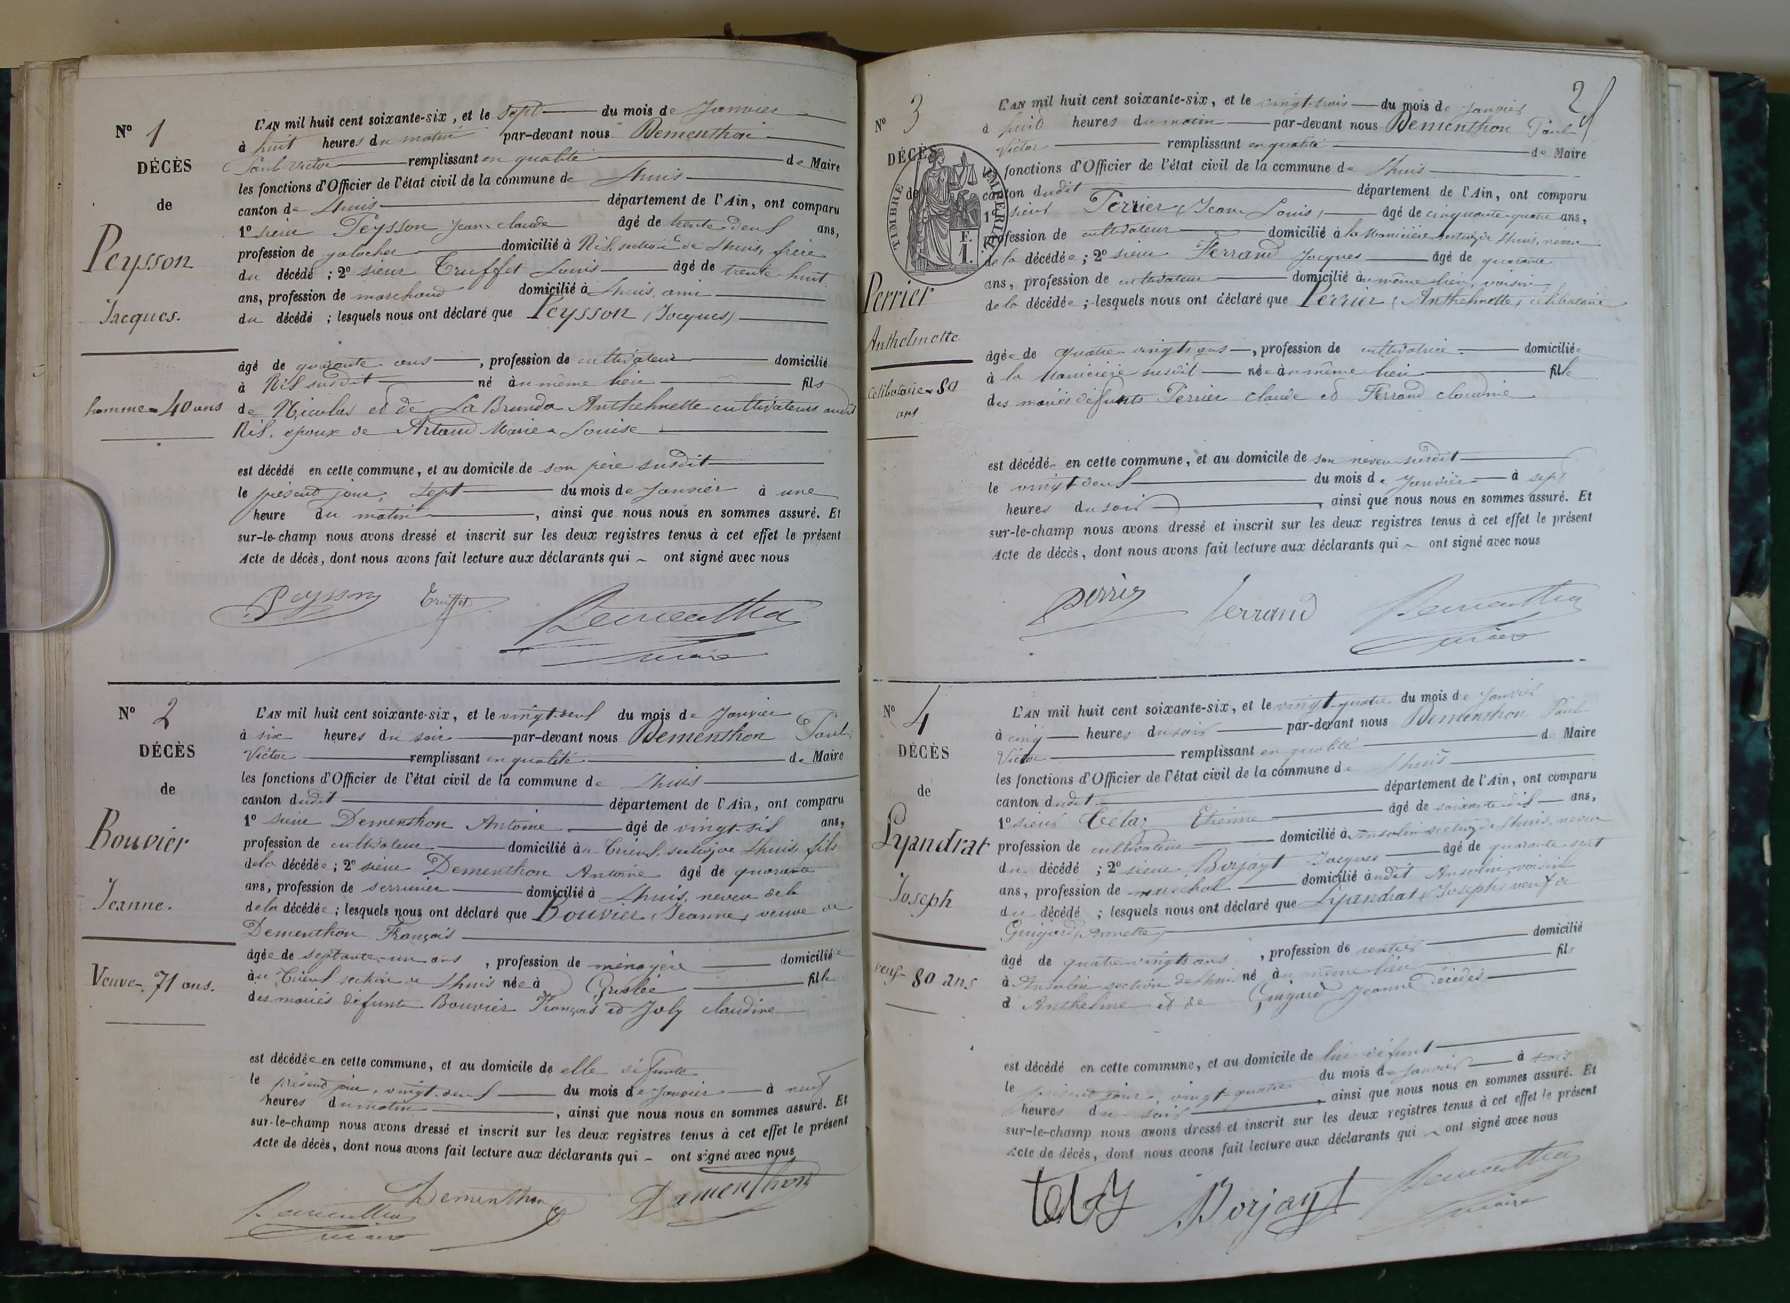 N° 1
DÉCÈS
de
Peysson
Jacques.
homme - 40 ans
L'AN mil huit cent soixante-six, et le sept du mois de Janvier
à huit heures du matin par-devant nous Dementhon
Paul Victor remplissant en qualité de Maire
les fonctions d'Officier de l'état civil de la commune de Lhuis
canton de Lhuis département de l'Ain, ont comparu
1° sieur Peysson Jean Claude âgé de trente deux ans,
profession de galocher domicilié à Rix, section de Lhuis, frère
du décédé ; 2° sieur Truffet Louis âgé de trente huit
ans, profession de marchand domicilié à Lhuis, ami
du décédé ; lesquels nous ont déclaré que Peysson (Jacques)
âgé de quarante ans , profession de cultivateur domicilié
à Rix susdit né au même lieu fils
de Nicolas et de La Brunda Anthelmette cultivateurs audit
Rix, époux de Artaud Marie Louise
est décédé en cette commune, et au domicile de son père susdit
le présent jour, sept du mois de Janvier à une
heure du matin , ainsi que nous nous en sommes assuré. Et
sur-le-champ nous avons dressé et inscrit sur les deux registres tenus à cet effet le présent
Acte de décès, dont nous avons fait lecture aux déclarants qui ~ ont signé avec nous
Peysson Truffet Dementhon
maire
N° 2
DÉCÈS
de
Bouvier
Jeanne.
Veuve - 71 ans.
L'AN mil huit cent soixante-six, et le vingt-deux du mois de Janvier
à six heures du soir par-devant nous Dementhon Paul
Victor remplissant en qualité de Maire
les fonctions d'Officier de l'état civil de la commune de Lhuis
canton dudit département de l'Ain, ont comparu
1° sieur Dementhon Antoine âgé de vingt-six ans,
profession de cultivateur domicilié à section de Lhuis, fils
de la décédée ; 2° sieur Dementhon Antoine âgé de quarante
ans, profession de serrurier domicilié à Lhuis, neveu de la
de la décédée ; lesquels nous ont déclaré que Bouvier (Jeanne) veuve de
Dementhon François
âgée de septante-un ans , profession de ménagère domiciliée
section de Lhuis née à Groslée fille
des mariés défunts Bouvier François et Joly Claudine
est décédée en cette commune, et au domicile de elle défunte
le présent jour, vingt-deux du mois de Janvier à neuf
heures du matin , ainsi que nous nous en sommes assuré. Et
sur-le-champ nous avons dressé et inscrit sur les deux registres tenus à cet effet le présent
Acte de décès, dont nous avons fait lecture aux déclarants qui ~ ont signé avec nous
Dementhon Dementhon Dementhon
maire
2
N° 3
DÉCÈS
de
TIMBRE IMPÉRIAL
F. 1.
Perrier
Anthelmette
Célibataire - 80
ans
L'AN mil huit cent soixante-six, et le vingt-trois du mois de Janvier
à huit heures du matin par-devant nous Dementhon Paul
Victor remplissant en qualité de Maire
fonctions d'Officier de l'état civil de la commune de Lhuis
canton dudit département de l'Ain, ont comparu
1° sieur Perrier (Jean Louis) âgé de cinquante-quatre ans,
profession de cultivateur domicilié à la Manicière section de Lhuis, neveu
de la décédée ; 2° sieur Ferrand Jacques âgé de quarante
ans, profession de cultivateur domicilié au même lieu, voisin
de la décédée ; lesquels nous ont déclaré que Perrier (Anthelmette) célibataire
âgée de quatre-vingts ans , profession de cultivatrice domiciliée
à la Manicière susdit née au même lieu fille
des mariés défunts Perrier Claude et Ferrand Claudine
est décédée en cette commune, et au domicile de son neveu susdit
le vingt-deux du mois de Janvier à sept
heures du soir , ainsi que nous nous en sommes assuré. Et
sur-le-champ nous avons dressé et inscrit sur les deux registres tenus à cet effet le présent
Acte de décès, dont nous avons fait lecture aux déclarants qui ~ ont signé avec nous
perrier ferrand Dementhon
maire
N° 4
DÉCÈS
de
Lyandrat
Joseph
veuf 80 ans
L'AN mil huit cent soixante-six, et le vingt-quatre du mois de Janvier
à cinq heures du soir par-devant nous Dementhon Paul
Victor remplissant en qualité de Maire
les fonctions d'Officier de l'état civil de la commune de Lhuis
canton dudit département de l'Ain, ont comparu
1° sieur Etienne âgé de soixante-dix ans,
profession de cultivateur domicilié à Ansolin section de Lhuis, neveu
du décédé ; 2° sieur Borjayt Jacques âgé de quarante-sept
ans, profession de maréchal domicilié audit Ansolin, voisin
du décédé ; lesquels nous ont déclaré que Lyandrat (Joseph) veuf de
Guigard Annette
âgé de quatre-vingts ans , profession de rentier domicilié
à Ansolin section de Lhuis né au même lieu fils
d'Anthelme et de Guigard Jeanne décédés
est décédé en cette commune, et au domicile de lui défunt
le présent jour, vingt-quatre du mois de Janvier à trois
heures du soir , ainsi que nous nous en sommes assuré. Et
sur-le-champ nous avons dressé et inscrit sur les deux registres tenus à cet effet le présent
Acte de décès, dont nous avons fait lecture aux déclarants qui ~ ont signé avec nous
Borjayt Dementhon
maire